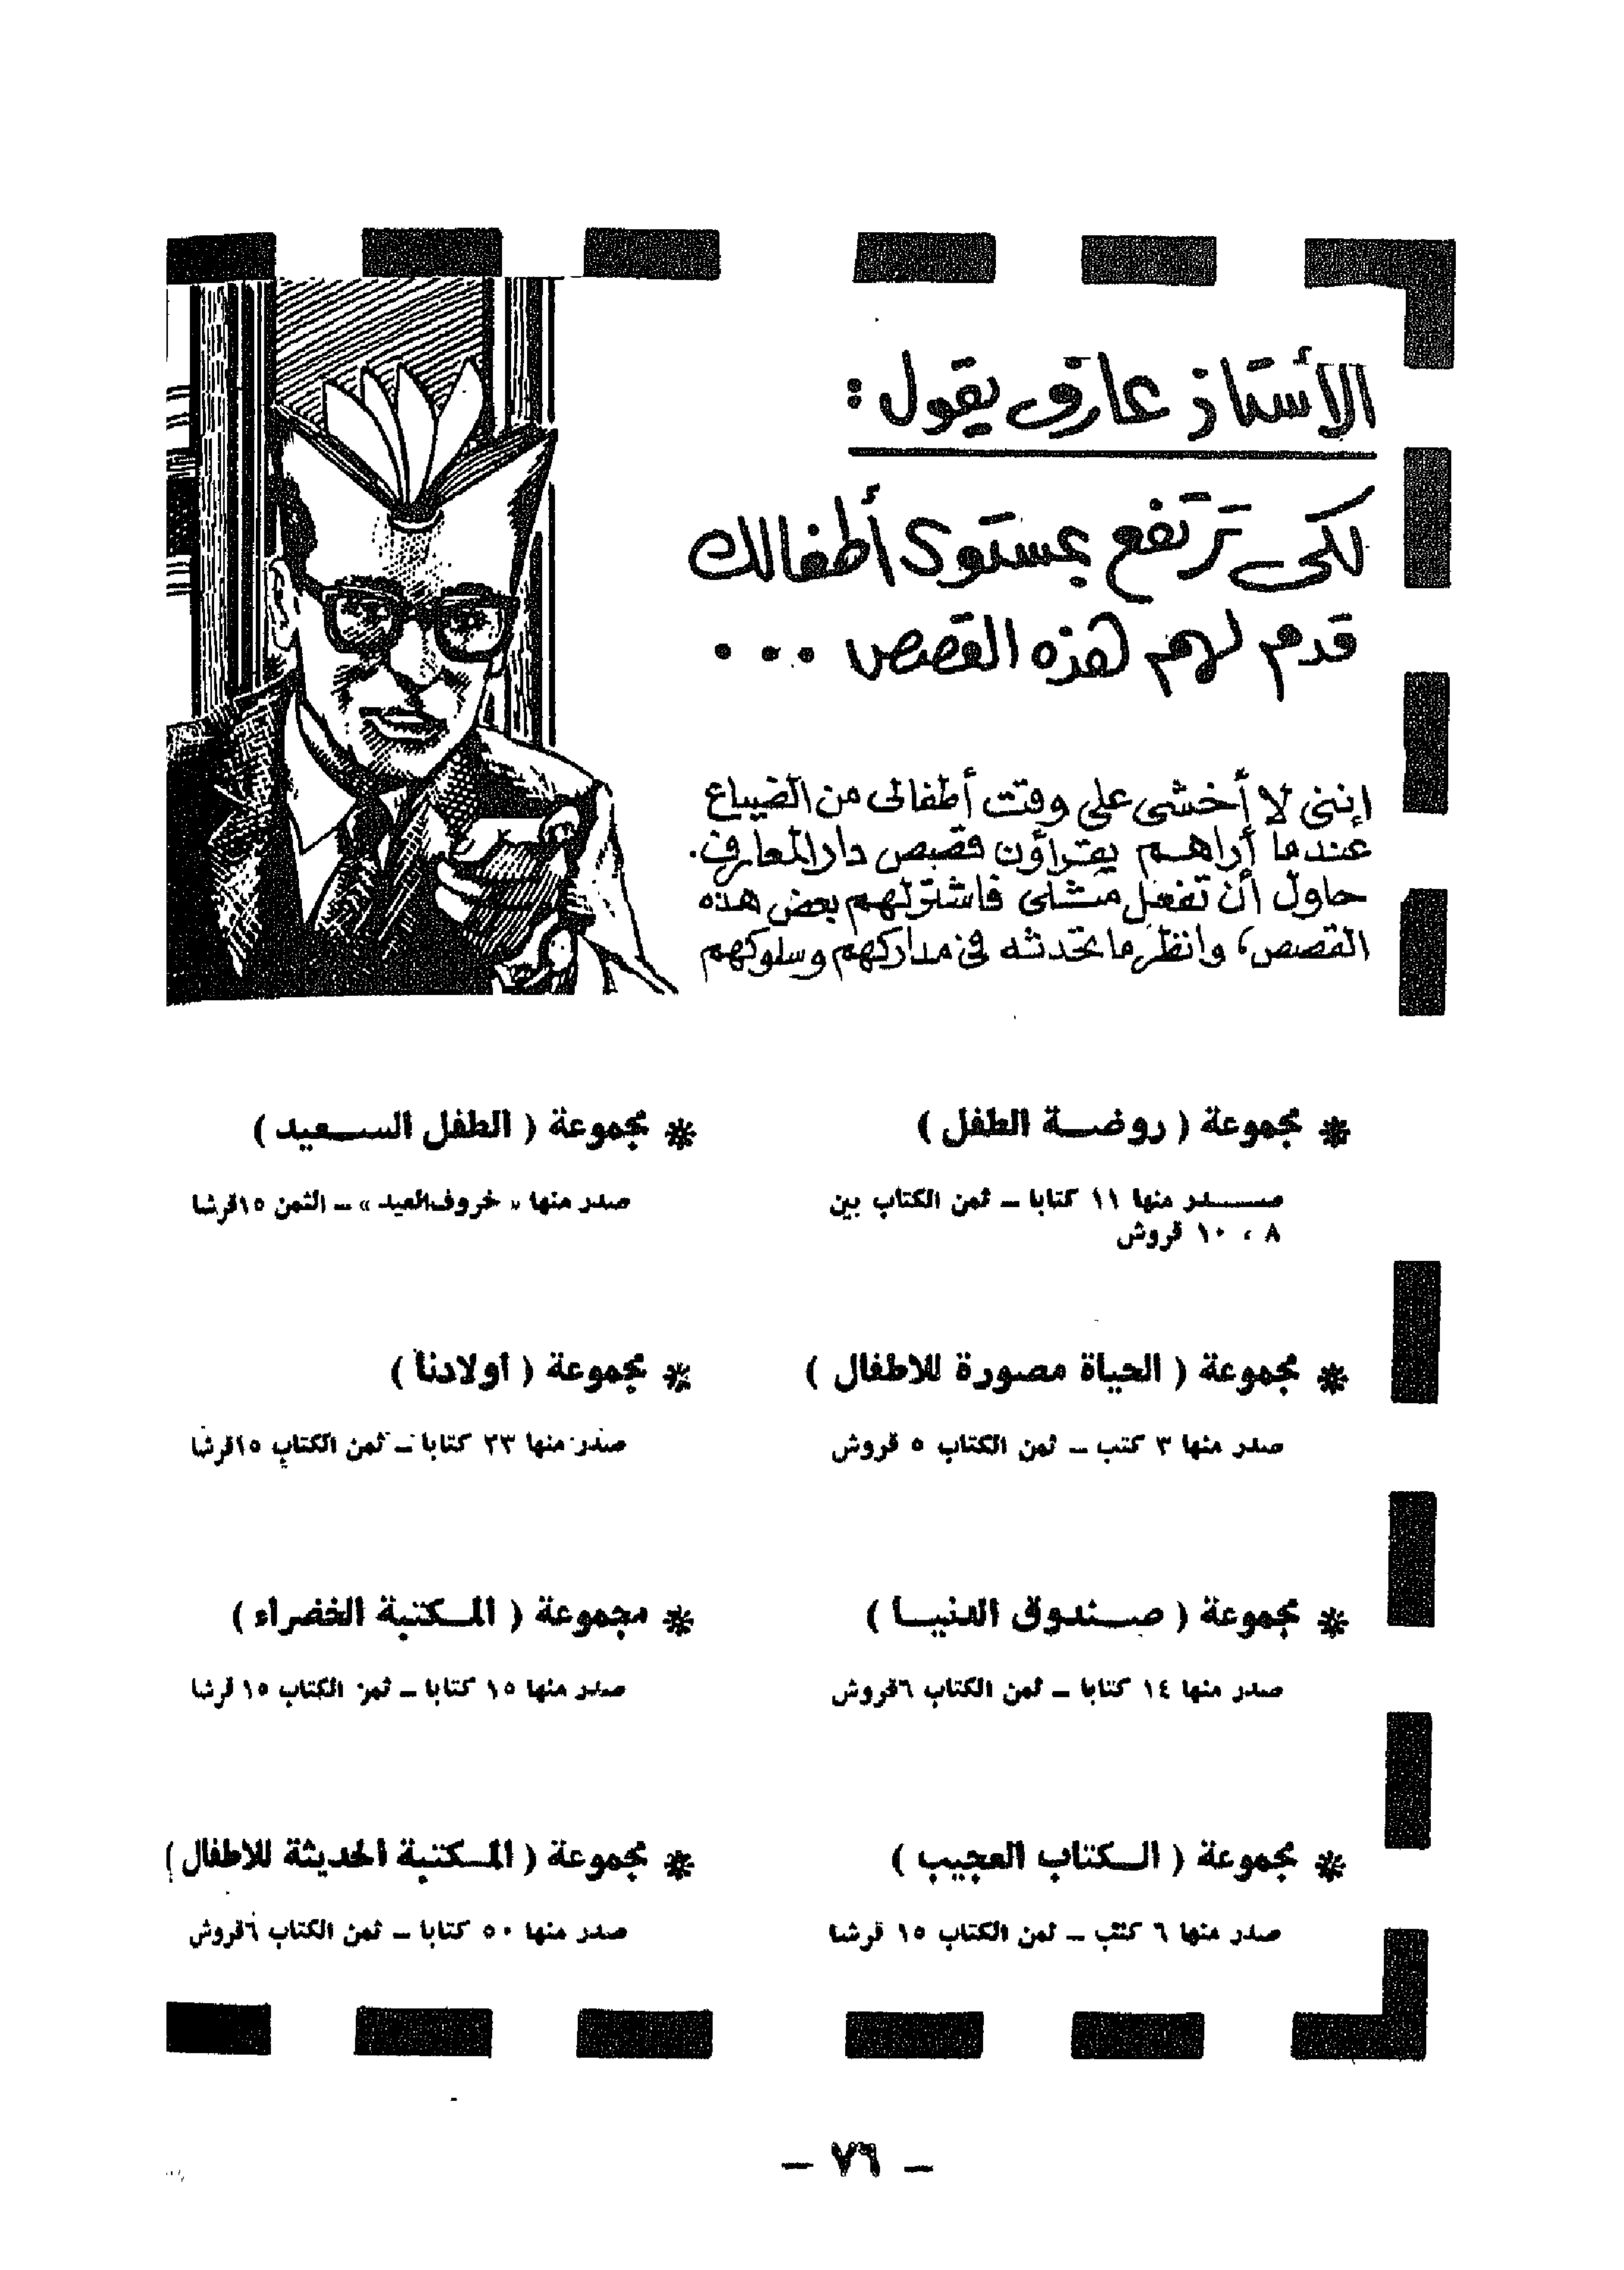 الأستاذ عارف يقول :
لكى ترتفع بمستوى أطفالك
قدم لهم هذه القصص ...
إننى لا أخشى على وقت أطفالى من الضياع
عندما أراهم يقرأون قصص دار المعارف.
حاول أن تفعل مثلى فاشتر لهم بعض هذه
القصص، وانظر ما تحدثه فى مداركهم وسلوكهم
* مجموعة ( روضة الطفل )
صدر منها ١١ كتابا – ثمن الكتاب بين
٨ ، ١٠ قروش
* مجموعة ( الطفل السعيد )
صدر منها « خروف العيد » – الثمن ١٥ قرشا
* مجموعة ( الحياة مصورة للاطفال )
صدر منها ٣ كتب – ثمن الكتاب ٥ قروش
* مجموعة ( أولادنا )
صدر منها ٢٣ كتابا – ثمن الكتاب ١٥ قرشا
* مجموعة ( صندوق الدنيا )
صدر منها ١٤ كتابا – ثمن الكتاب ٦ قروش
* مجموعة ( المكتبة الخضراء )
صدر منها ١٥ كتابا – ثمن الكتاب ١٥ قرشا
* مجموعة ( الكتاب العجيب )
صدر منها ٦ كتب – ثمن الكتاب ١٥ قرشا
* مجموعة ( المكتبة الحديثة للاطفال )
صدر منها ٥٠ كتابا – ثمن الكتاب ٦ قروش
– ٧٦ –